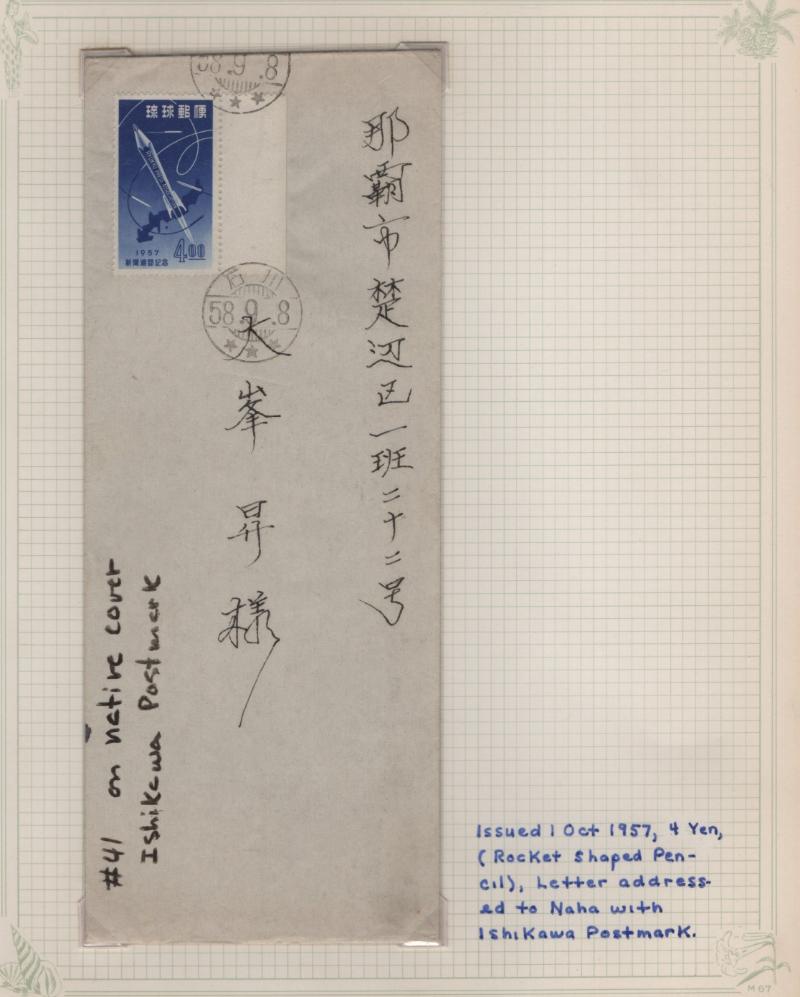 58.9.8
琉球郵便
1957
4.00
新聞週間記念
石川
58.9.8
那覇市楚辺区一班二十二号
大峯昇様
#41 on native cover
Ishikawa Postmark
Issued 1 Oct 1957, 4 Yen,
(Rocket Shaped Pen-
cil), Letter address-
ed to Naha with
Ishikawa Postmark.
M 67